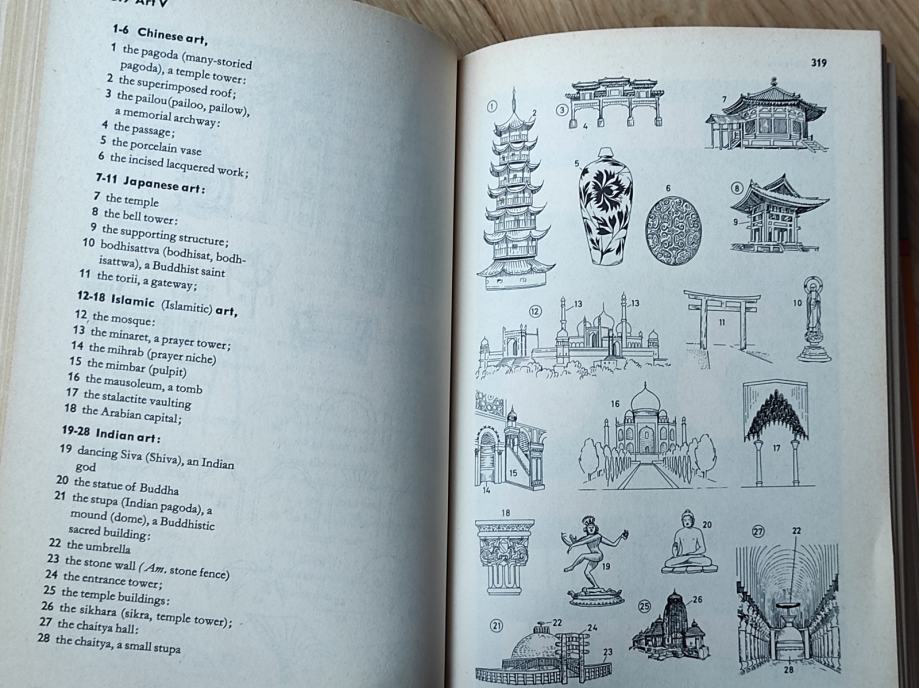 Art V
1-6 Chinese art,
1 the pagoda (many-storied
pagoda), a temple tower:
2 the superimposed roof;
3 the pailou (pailoo, pailow),
a memorial archway:
4 the passage;
5 the porcelain vase
6 the incised lacquered work;
7-11 Japanese art:
7 the temple
8 the bell tower:
9 the supporting structure;
10 bodhisattva (bodhisat, bodh-
isattwa), a Buddhist saint
11 the torii, a gateway;
12-18 Islamic (Islamitic) art,
12 the mosque:
13 the minaret, a prayer tower;
14 the mihrab (prayer niche)
15 the mimbar (pulpit)
16 the mausoleum, a tomb
17 the stalactite vaulting
18 the Arabian capital;
19-28 Indian art:
19 dancing Siva (Shiva), an Indian
god
20 the statue of Buddha
21 the stupa (Indian pagoda), a
mound (dome), a Buddhistic
sacred building:
22 the umbrella
23 the stone wall (Am. stone fence)
24 the entrance tower;
25 the temple buildings:
26 the sikhara (sikra, temple tower);
27 the chaitya hall:
28 the chaitya, a small stupa
319
1 2 3 4 7
5 6 8 9
12 13 13 11 10
14 15 16 17
18 19 20 27 22
21 22 24 23 25 26 28